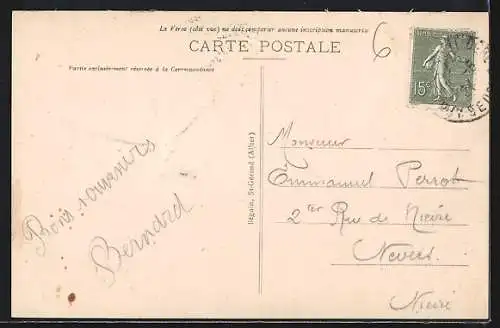 Le Verso (côté vue) ne doit comporter aucune inscription manuscrite
CARTE POSTALE
6
15c
Partie exclusivement réservée à la Correspondance
Bons souvenirs
Bernard
Béguin, St-Gérand (Allier)
Monsieur
Emmanuel Perrot
2 ter Rue de Nièvre
Nevers
Nièvre